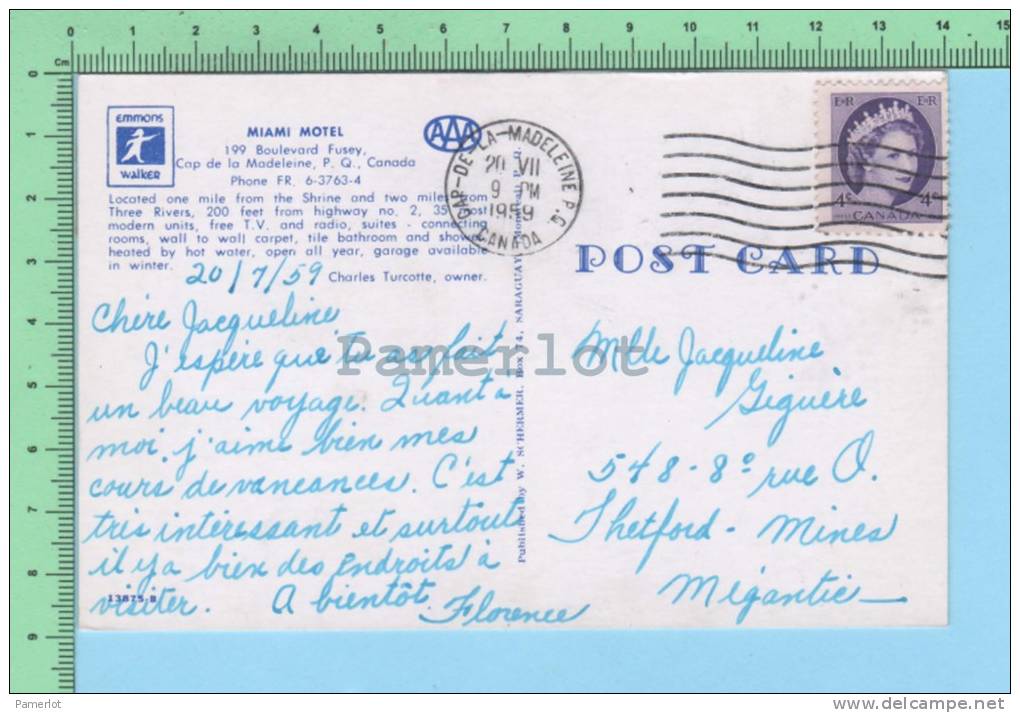 0 1 2 3 4 5 6 7 8 9 10 11 12 13 14 15
Cm
0
1
2
3
4
5
6
7
8
9
emmons
walker
MIAMI MOTEL
199 Boulevard Fusey,
Cap de la Madeleine, P. Q., Canada
Phone FR. 6-3763-4
Located one mile from the Shrine and two miles from
Three Rivers, 200 feet from highway no. 2, 35 most
modern units, free T.V. and radio, suites - connecting
rooms, wall to wall carpet, tile bathroom and shower
heated by hot water, open all year, garage available
in winter.
Charles Turcotte, owner.
AAA
CAP-DE-LA-MADELEINE P.Q.
20 VII
9 PM
1959
CANADA
E·R E·R
4¢ 4¢
CANADA
POST CARD
20/7/59
Chère Jacqueline
J'espère que tu as fait
un beau voyage. Quant à
moi, j'aime bien mes
cours de vancances. C'est
très intéressant et surtout
il y a bien des endroits à
visiter. A bientôt.
Florence
13875-B
Published by W. SCHERMER, Box 74, SARAGUAY, Montreal, P.Q.
Mlle Jacqueline
Giguère
548-8e rue O.
Thetford-Mines
Mégantic
Pamerlot
Pamerlot
delcampe.net